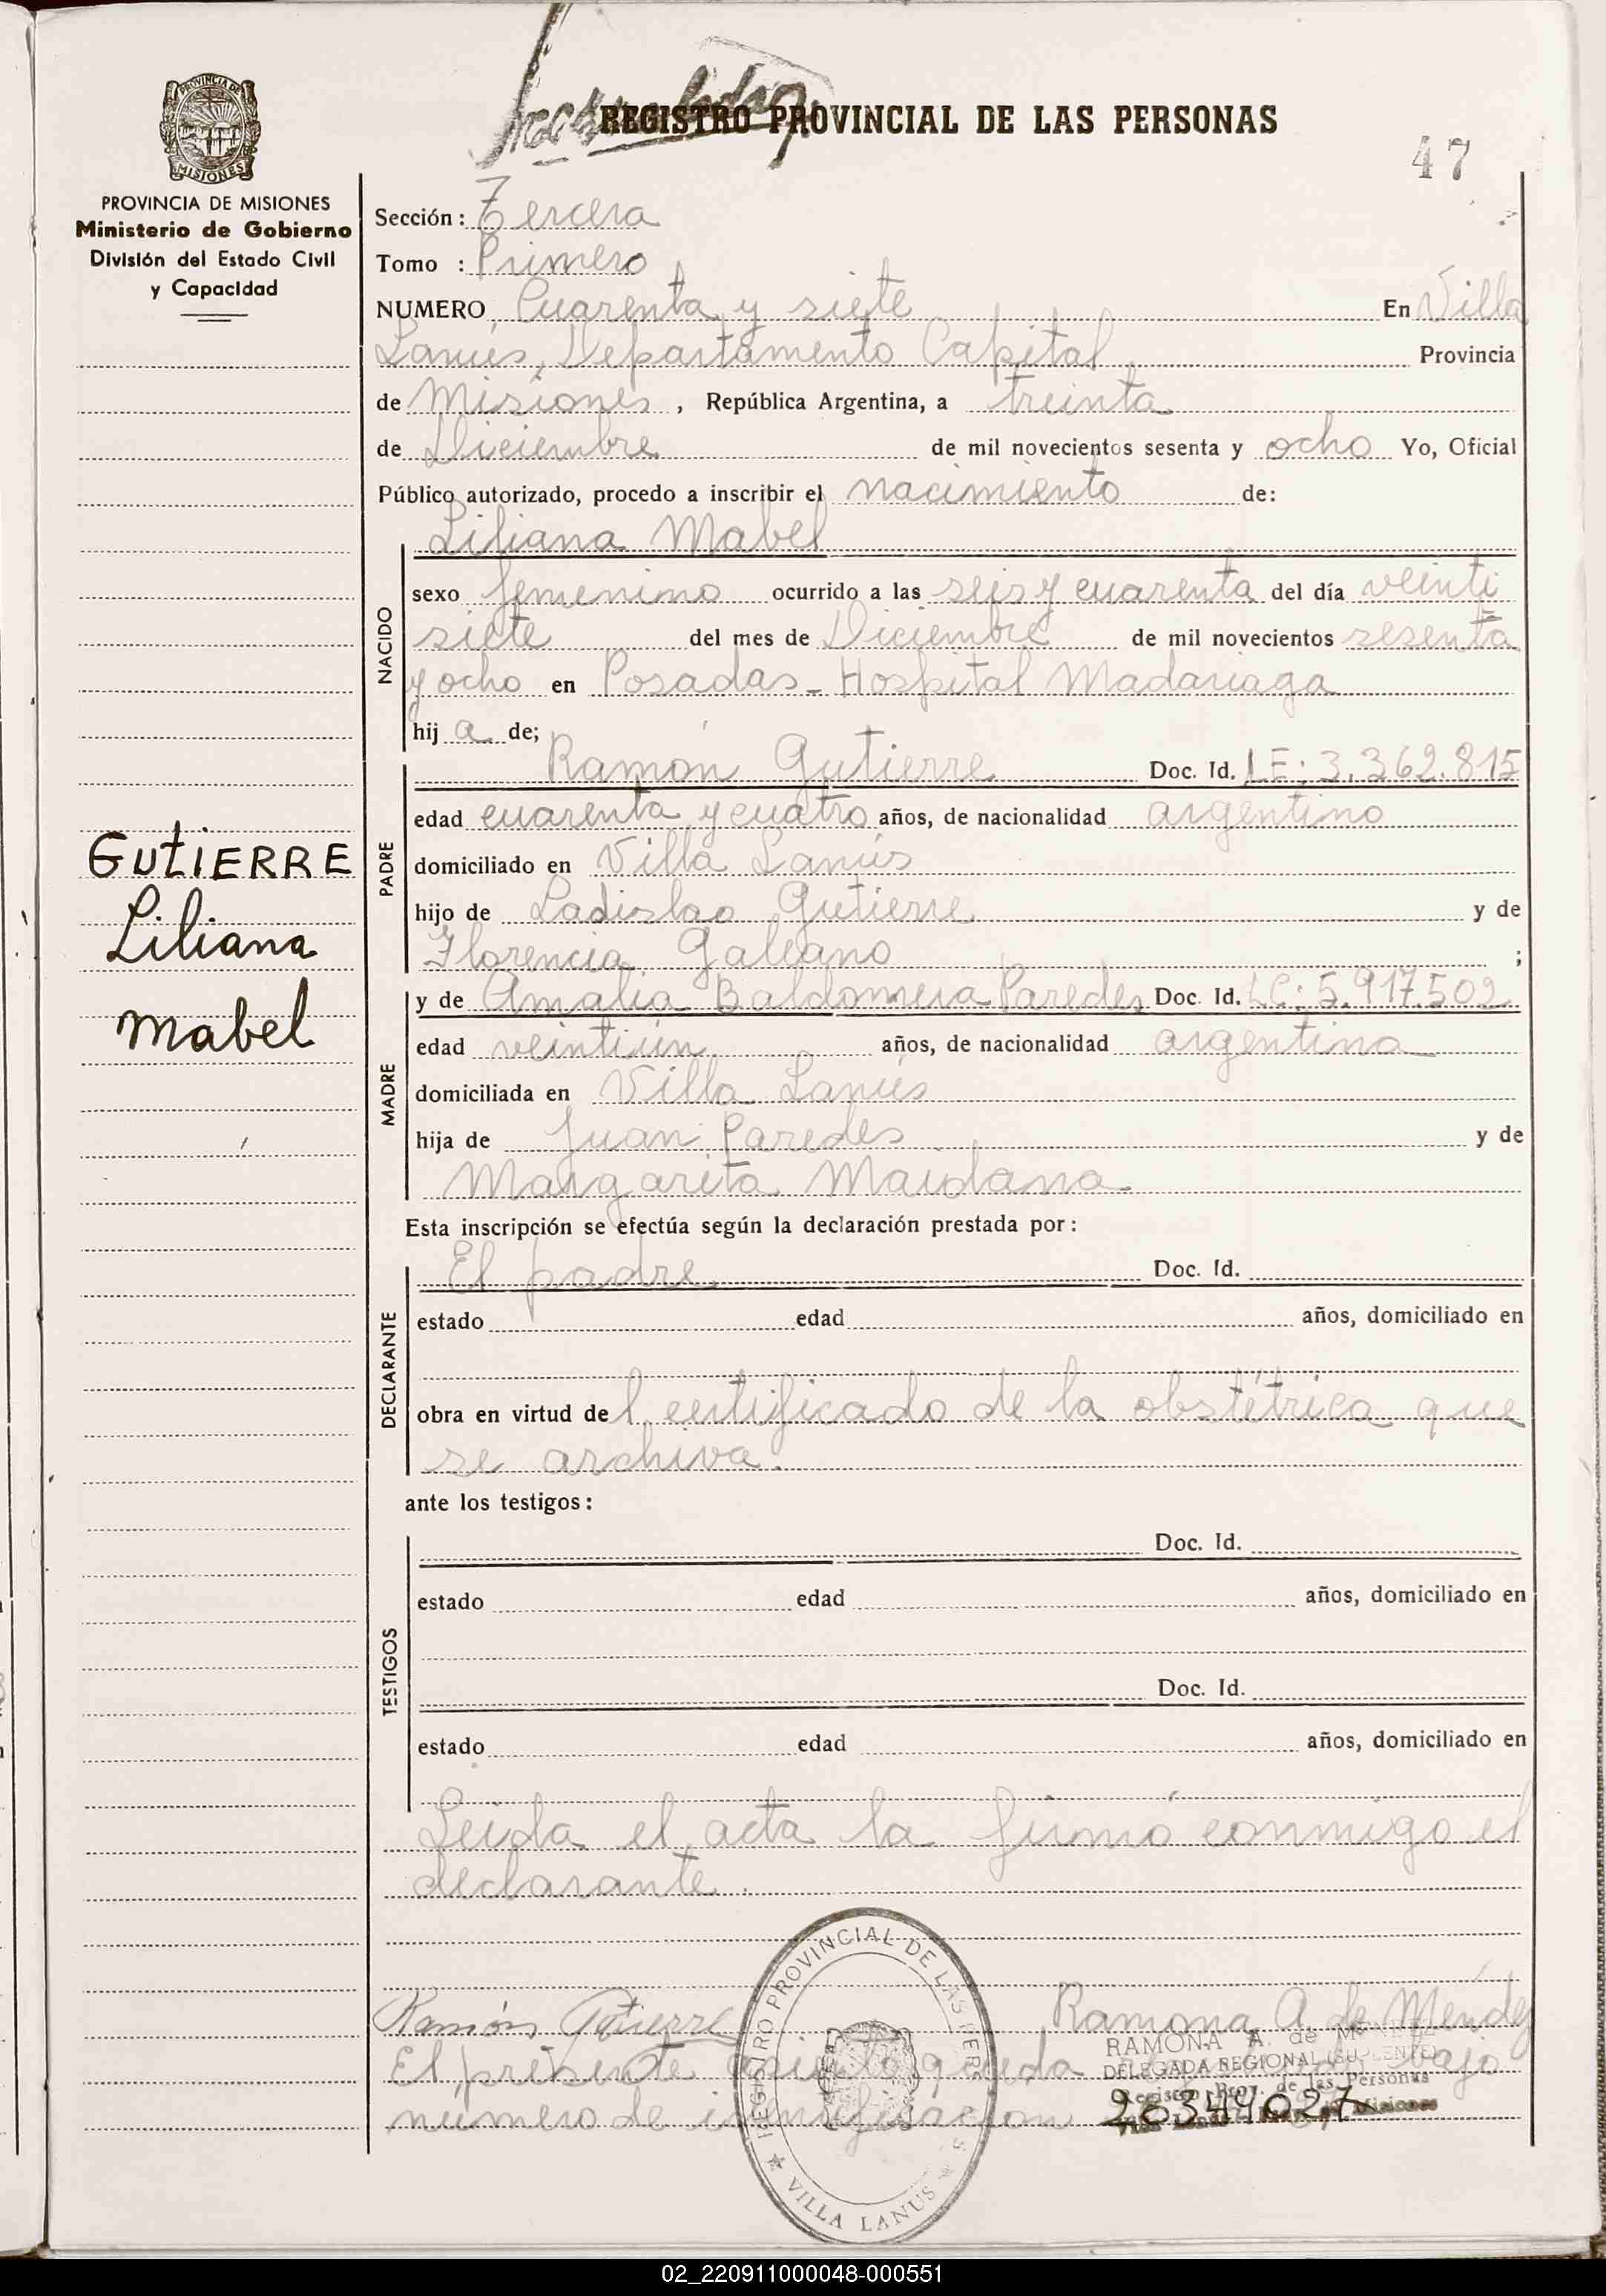 REGISTRO PROVINCIAL DE LAS PERSONAS
47
PROVINCIA DE
MISIONES
PROVINCIA DE MISIONES
Ministerio de Gobierno
División del Estado Civil
y Capacidad
Sección: Tercera
Tomo : Primero
NUMERO Cuarenta y siete En Villa
Lanús, Departamento Capital Provincia
de Misiones, República Argentina, a treinta
de Diciembre de mil novecientos sesenta y ocho Yo, Oficial
Público autorizado, procedo a inscribir el nacimiento de:
Liliana Mabel
NACIDO
sexo femenino ocurrido a las seis y cuarenta del día veinti
siete del mes de Diciembre de mil novecientos sesenta
y ocho en Posadas - Hospital Madariaga
hij a de;
PADRE
Ramón Gutierre Doc. Id. LE: 3.362.815
edad cuarenta y cuatro años, de nacionalidad argentino
GUTIERRE
Liliana
Mabel
domiciliado en Villa Lanús
hijo de Ladislao Gutierre y de
Florencia Galeano ;
MADRE
y de Amalia Baldomera Paredes Doc. Id. LC: 5.917.502
edad veintiún años, de nacionalidad argentina
domiciliada en Villa Lanús
hija de Juan Paredes y de
Margarita Maidana
Esta inscripción se efectúa según la declaración prestada por:
DECLARANTE
El padre Doc. Id.
estado edad años, domiciliado en
obra en virtud del certificado de la obstétrica que
se archiva.
ante los testigos:
TESTIGOS
Doc. Id.
estado edad años, domiciliado en
Doc. Id.
estado edad años, domiciliado en
Leida el acta la firmó conmigo el
declarante.
Ramón Gutierre
Ramona A. de Méndez
REGISTRO PROVINCIAL DE LAS PERS
VILLA LANUS
RAMONA A. de
DELEGADA REGIONAL (SUPLENTE)
Registro Prov. de las Personas
Misiones
El presente asiento queda bajo
número de 20344027
02_220911000048-000551